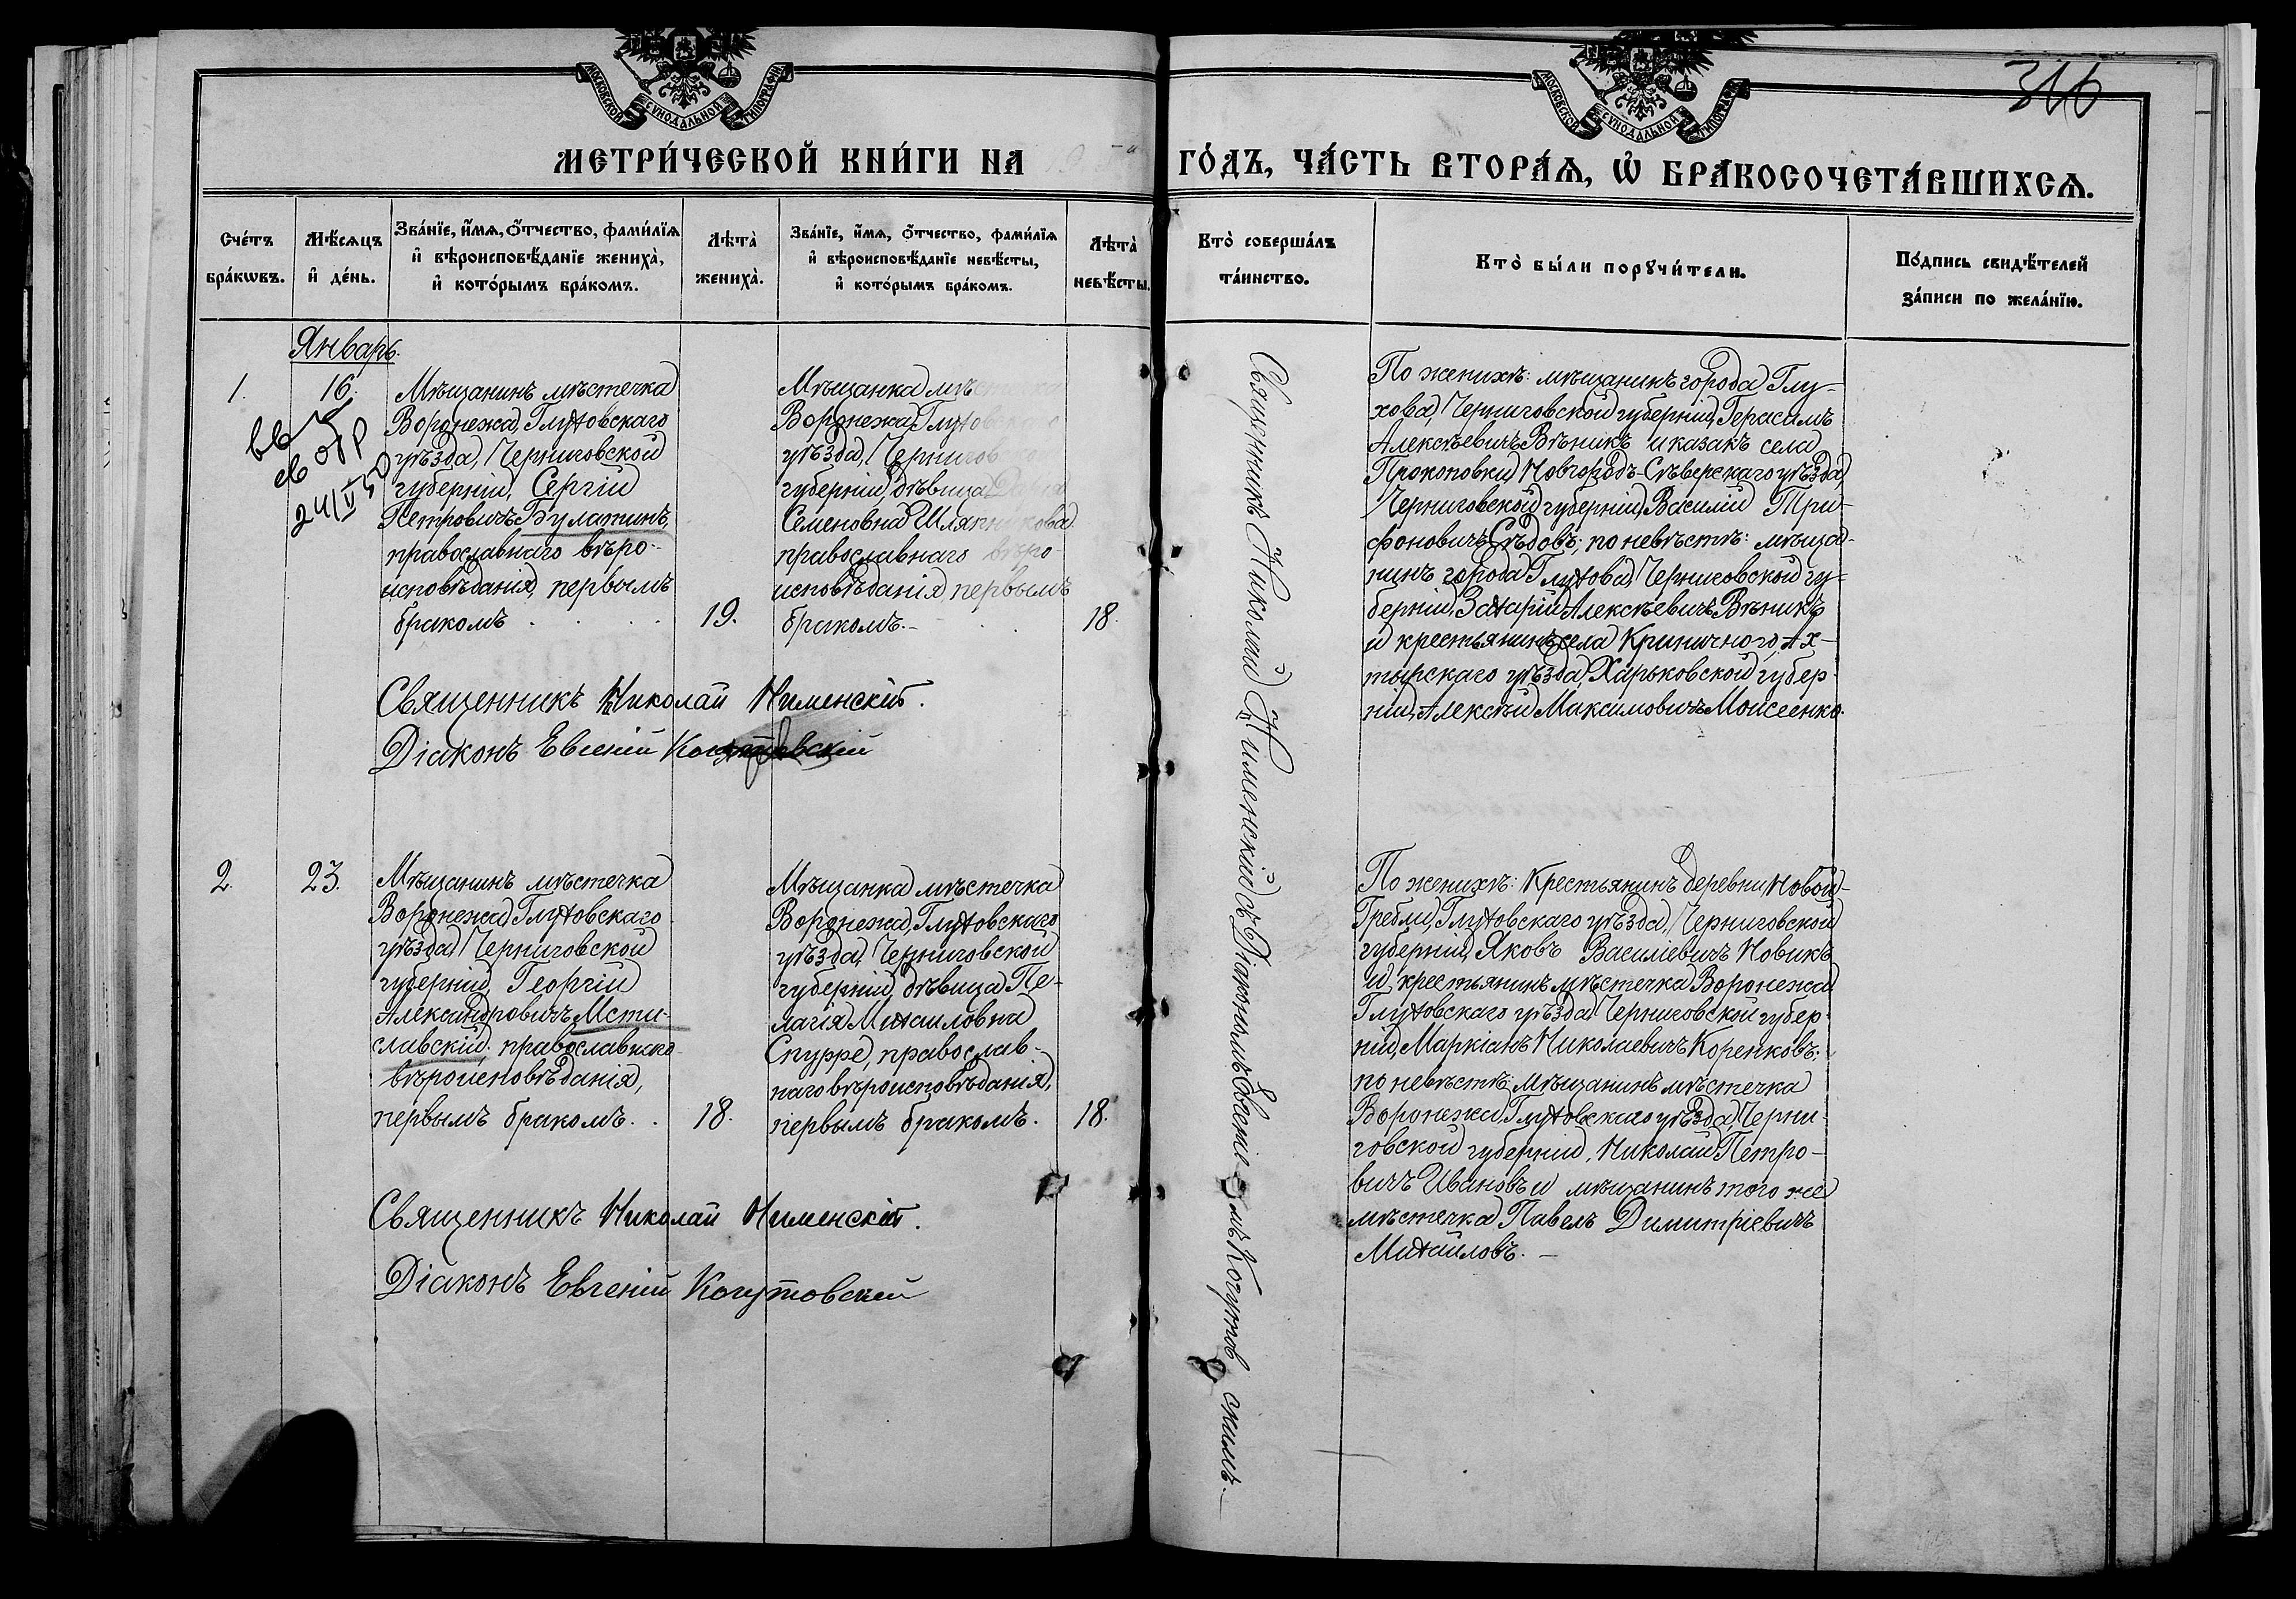 МОСКОВСКОЙ СѴНОДАЛЬНОЙ ТИПОГРАФІИ
МОСКОВСКОЙ СѴНОДАЛЬНОЙ ТИПОГРАФІИ
316
МЕТРИ́ЧЕСКОЙ КНИ́ГИ НА
ГО́ДЪ, ЧА́СТЬ ВТОРА́Ѧ, Ѡ҆ БРАКОСОЧЕТА́ВШИХСѦ.
Сче́тъ бра́кωвъ.
Мѣ́сѧцъ и҆ де́нь.
Зва́нїе, и҆́мѧ, ѻ҆́тчество, фами́лїѧ и҆ вѣроисповѣ́данїе жениха̀, и҆ кото́рымъ бра́комъ.
Лѣта̀ жениха̀.
Зва́нїе, и҆́мѧ, ѻ҆́тчество, фами́лїѧ и҆ вѣроисповѣ́данїе невѣ́сты, и҆ кото́рымъ бра́комъ.
Лѣта̀ невѣ́сты.
Кто̀ соверша́лъ та́инство.
Кто̀ бы́ли порꙋчи́тели.
По́дпись свидѣ́телей за́писи по жела́нїю.
Январь.
1.
16.
24/V 50
Мѣщанинъ мѣстечка
Воронежа, Глуховскаго
уѣзда, Черниговской
губерніи, Сергій
Петровичъ Булатинъ,
православнаго вѣро-
исповѣданія, первымъ
бракомъ
19.
Мѣщанка мѣстечка
Воронежа, Глуховскаго
уѣзда, Черниговской
губерніи, дѣвица Дарія
Семеновна Шляпникова
православнаго вѣро-
исповѣданія, первымъ
бракомъ.-
18.
Священникъ Николай Нименскій.
Діаконъ Евгеній Когутовскій
Священникъ Николай Нименскій съ Діакономъ Евгеніемъ Когутовскимъ.-
По женихѣ: мѣщанинъ города Глу-
хова, Черниговской губерніи, Герасимъ
Алексѣевичъ Вѣникъ и казакъ села
Прокоповки, Новгородъ-Сѣверскаго уѣзда,
Черниговской губерніи, Василій Три-
фоновичъ Сѣдовъ; по невѣстѣ: мѣща-
нинъ города Глухова, Черниговской гу-
берніи, Захарій Алексѣевичъ Вѣникъ
и крестьянинъ села Криничного, Ах-
тырскаго уѣзда, Харьковской губер-
ніи, Алексѣй Максимовичъ Моисеенко.
2.
23.
Мѣщанинъ мѣстечка
Воронежа, Глуховскаго
уѣзда, Черниговской
губерніи, Георгій
Александровичъ Мсти-
славскій, православнаго
вѣроисповѣданія,
первымъ бракомъ.
18.
Мѣщанка мѣстечка
Воронежа, Глуховскаго
уѣзда, Черниговской
губерніи, дѣвица Пе-
лагія Михаиловна
Спурре, православ-
наго вѣроисповѣданія,
первымъ бракомъ.
18.
По женихѣ: Крестьянинъ деревни Новой-
Гребли, Глуховскаго уѣзда, Черниговской
губерніи, Яковъ Василіевичъ Новикъ
и крестьянинъ мѣстечка Воронежа
Глуховскаго уѣзда, Черниговской губер-
ніи, Маркіанъ Николаевичъ Коренковъ;
по невѣстѣ: мѣщанинъ мѣстечка
Воронежа, Глуховскаго уѣзда, Черни-
говской губерніи, Николай Петро-
вичъ Ивановъ и мѣщанинъ того же
мѣстечка Павелъ Димитріевичъ
Михаиловъ.-
Священникъ Николай Нименскій.
Діаконъ Евгеній Когутовскій